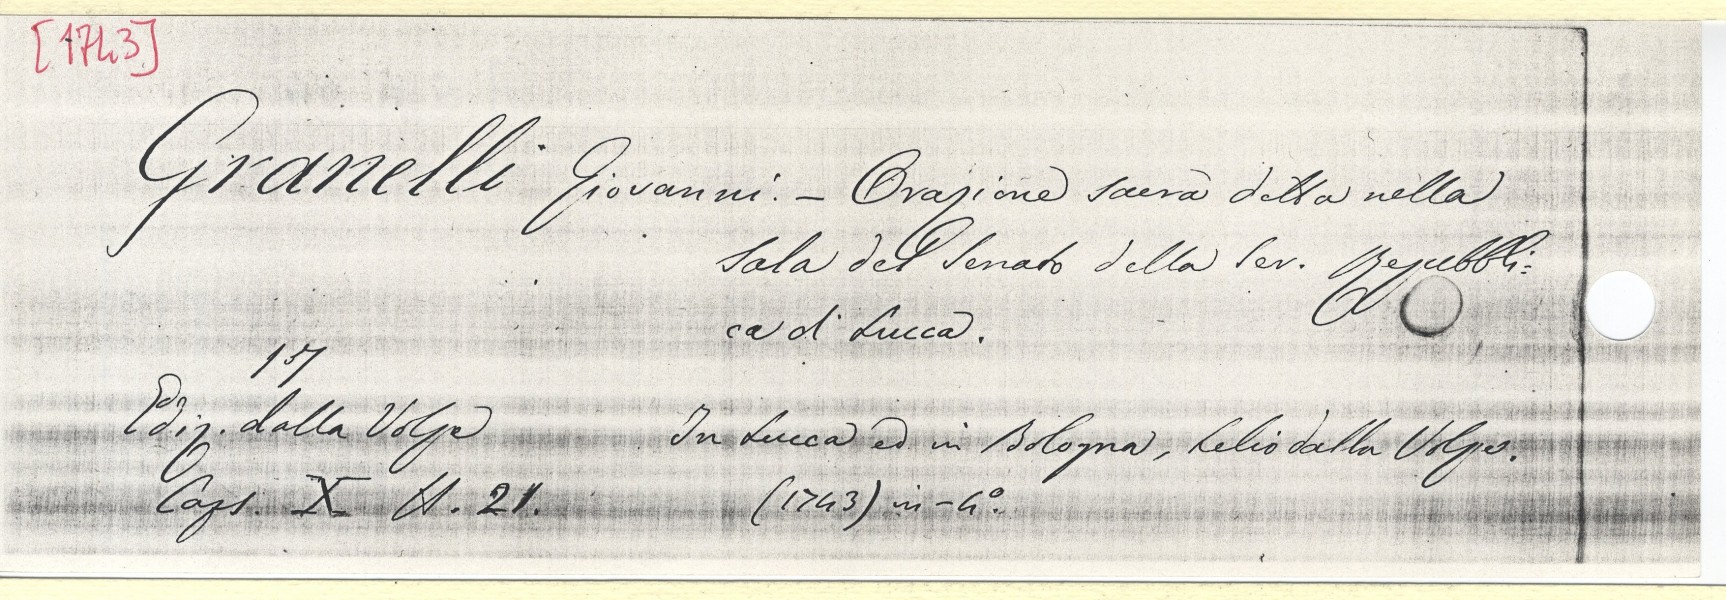 [1743]
Granelli Giovanni. - Orazione sacra detta nella
sala del Senato della Ser. Repubbli=
ca di Lucca.
17
Ediz. dalla Volpe
In Lucca ed in Bologna, Lelio dalla Volpe.
Caps. X 21.
(1743) in-4°.